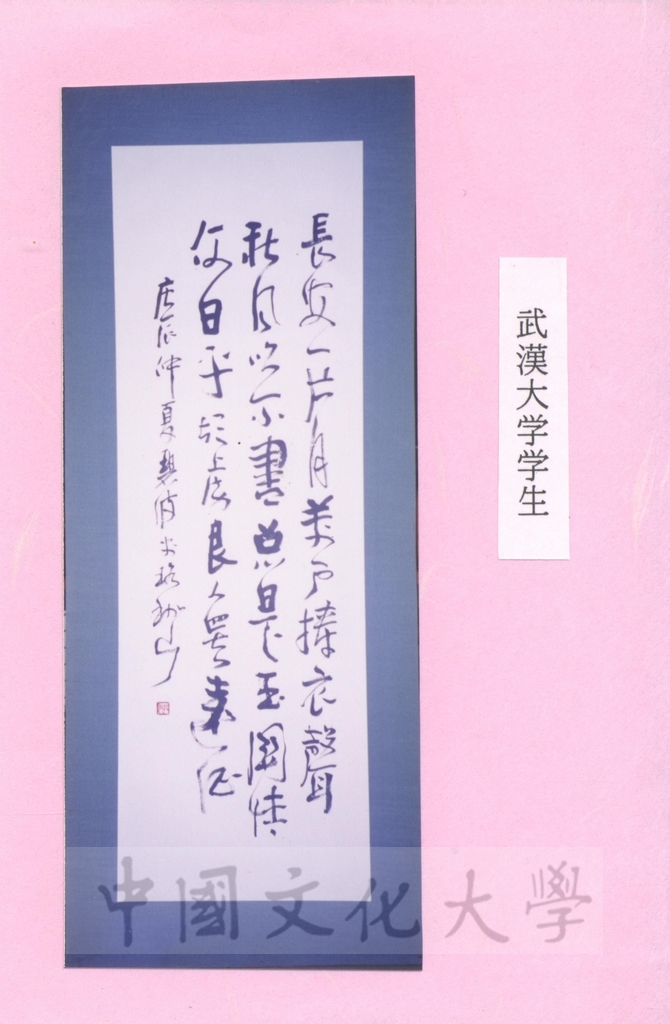 長安一片月萬戶擣衣聲
秋風吹不盡總是玉關情
何日平胡虜良人罷遠征
庚辰仲夏
武漢大学学生
中國文化大學